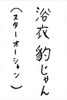 浴衣豹じゃん
(スターオーシャン)